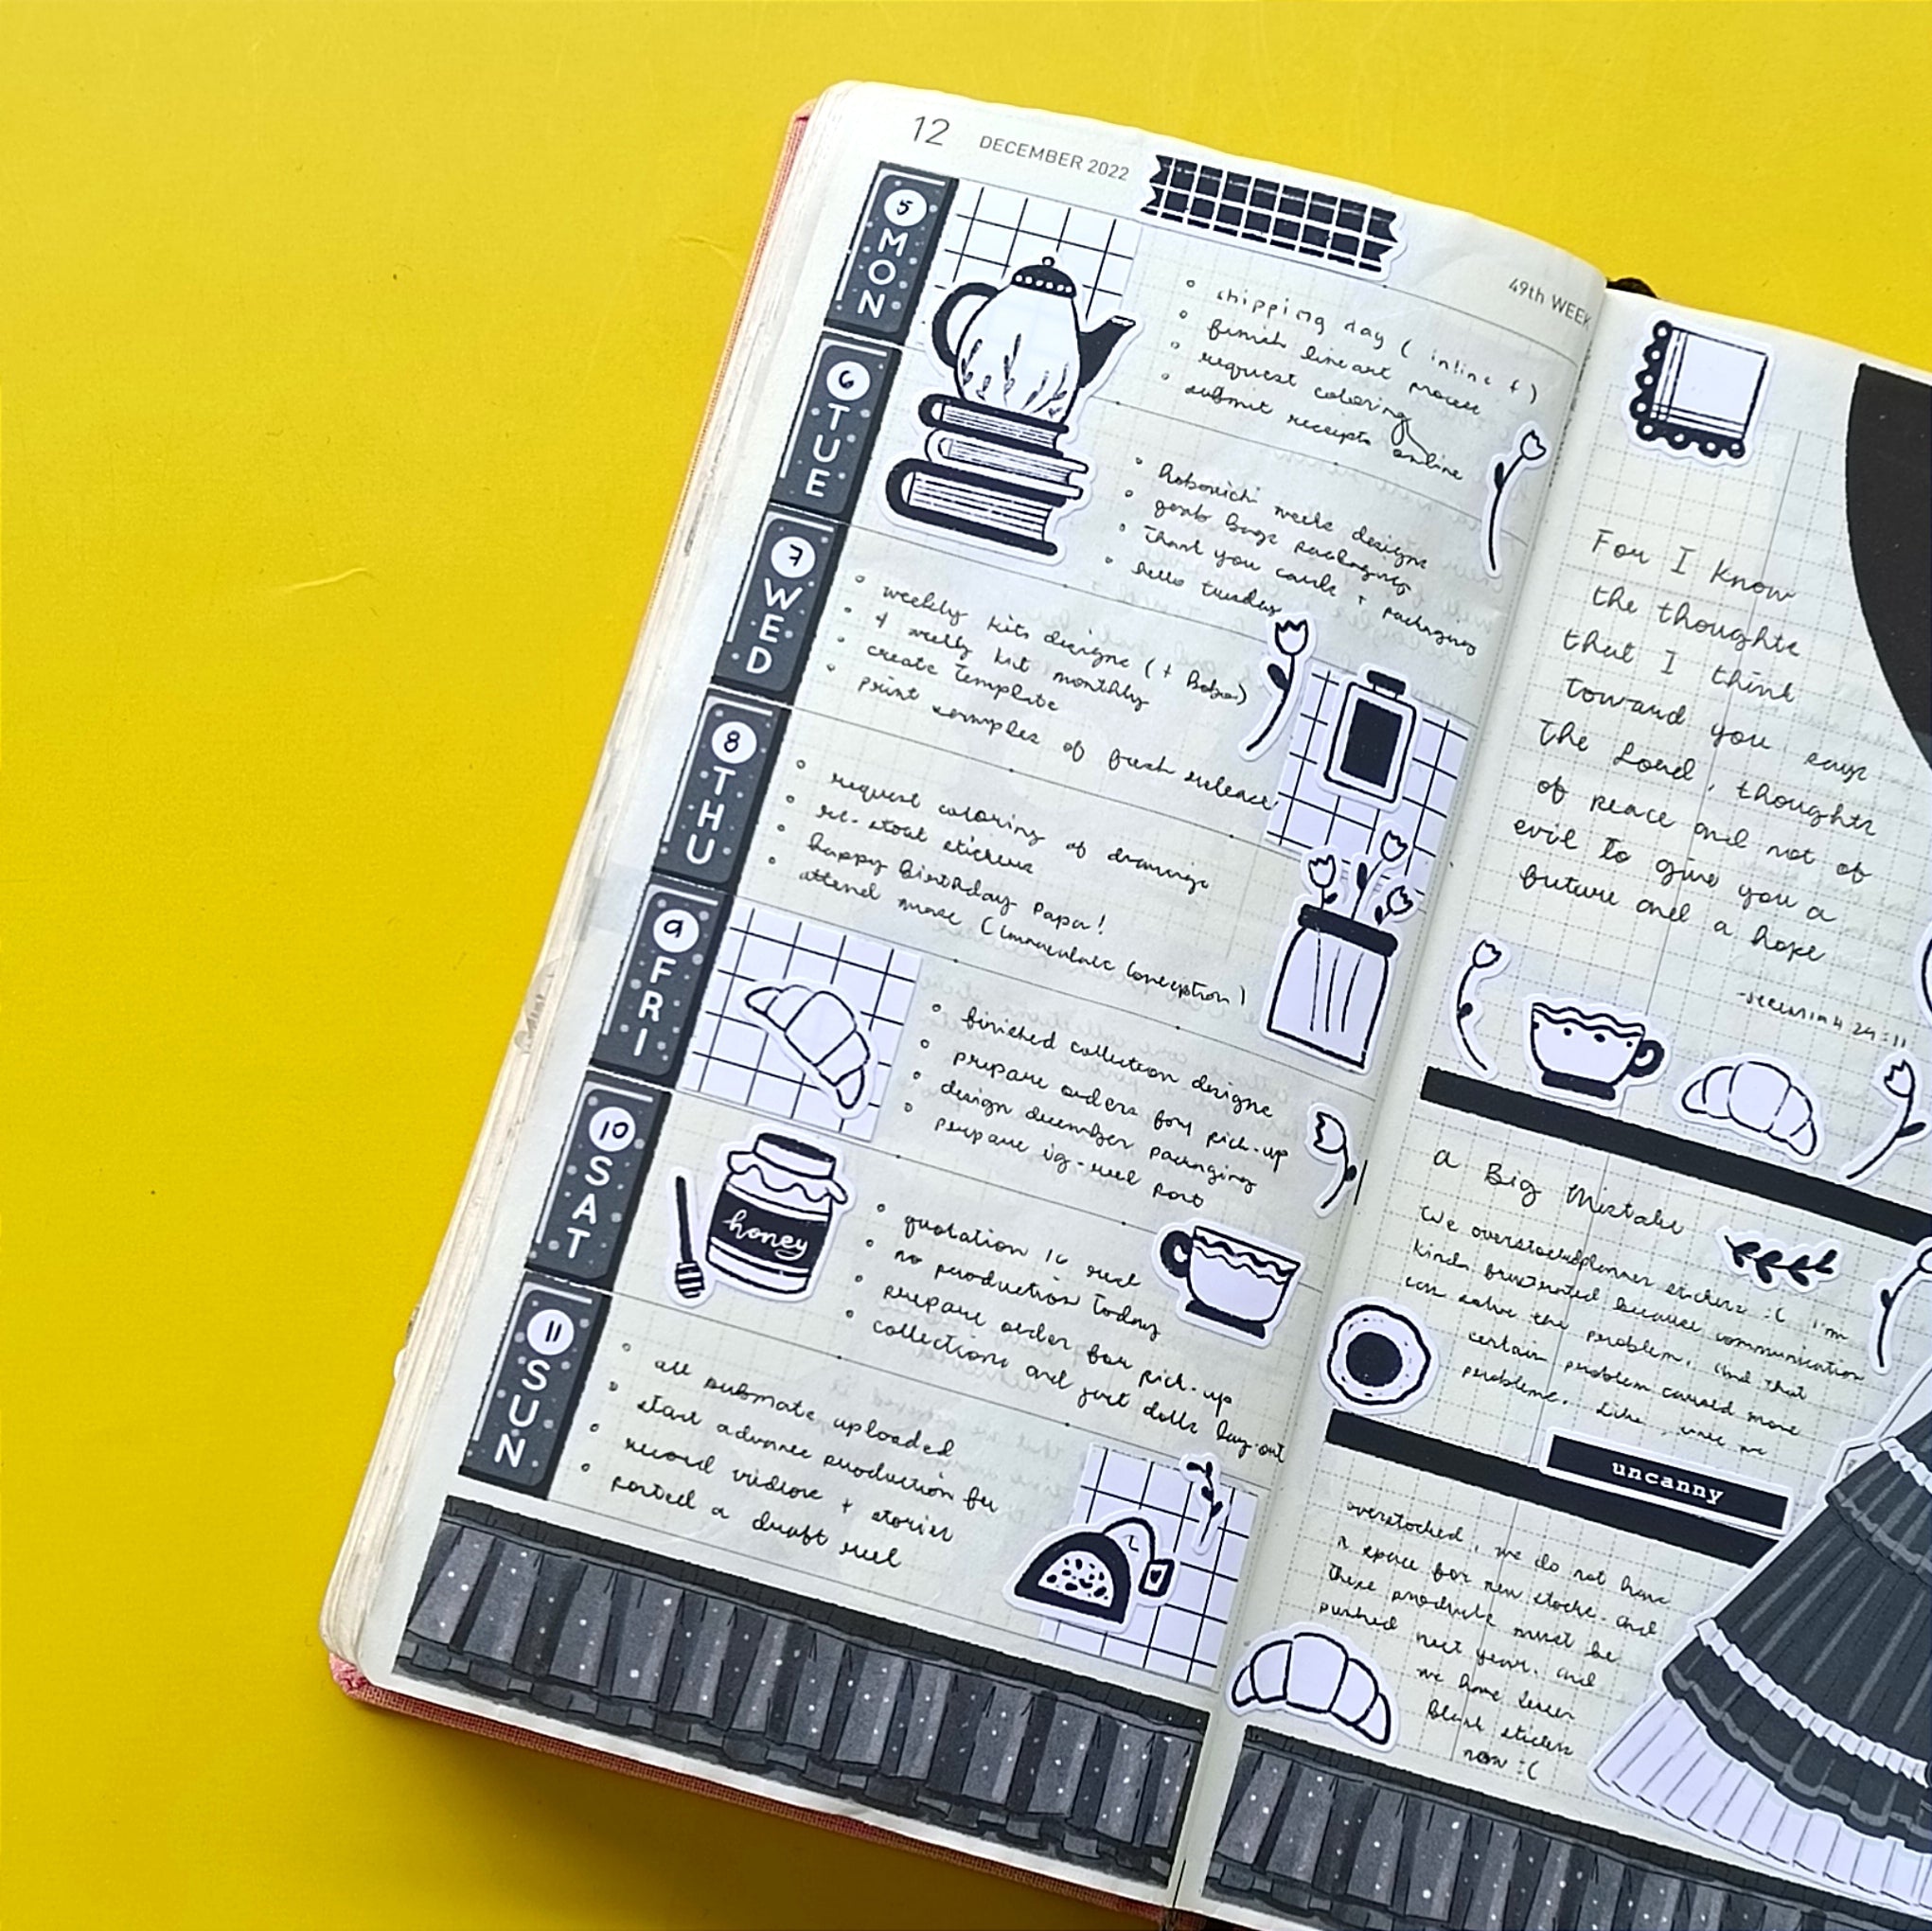 12 DECEMBER 2022
49th WEEK
5 MON
shipping day ( inline f )
finish lineart process
request coloring
submit receipts online
6 TUE
hobonichi weeks designs
grab bags packaging
thank you cards + packaging
hello tuesday
7 WED
weekly kits designs (+ hobo)
4 weekly kit monthly
create template
print samples of fresh release
8 THU
request coloring of drawings
re-stock stickers
happy birthday Papa!
attend mass (Immaculate Conception)
9 FRI
finished collection designs
prepare orders for pick-up
design december packaging
prepare ig-reel post
10 SAT
honey
quotation ig reel
no production today
prepare order for pick-up
collections and just dolls lay-out
11 SUN
all submats uploaded
start advance production for
record videos + stories
posted a draft reel
For I know
the thoughts
that I think
toward you says
the Lord, thoughts
of peace and not of
evil to give you a
future and a hope
-Jeremiah 29:11
a Big Mistake
We overstocked planner stickers :( I'm
kinda frustrated because communication
can solve the problem. And that
certain problem caused more
problems. Like, once we
uncanny
overstocked, we do not have
a space for new stocks. And
these products must be
pushed next year. And
we have lesser
blank stickers
now :(